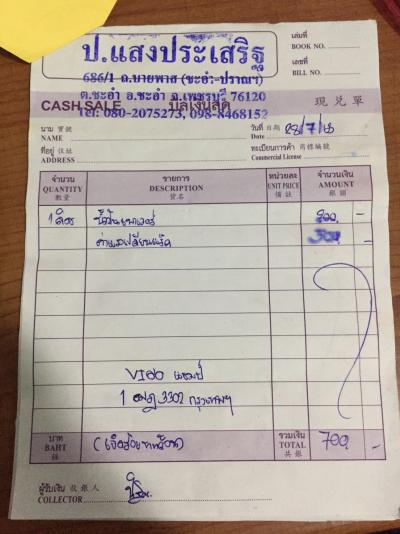 ป.แสงประเสริฐ
686/1 ถ.บายพาส (ชะอำ-ปราณฯ)
ต.ชะอำ อ.ชะอำ จ.เพชรบุรี 76120
Tel: 080-2075273, 098-8468152
เล่มที่
BOOK NO.
เลขที่
BILL NO.
CASH SALE บิลเงินสด 現兌單
นาม 寶號
NAME
วันที่ 日期
Date
ที่อยู่ 住址
ADDRESS
ทะเบียนการค้า 商標編號
Commercial License
จำนวน รายการ หน่วยละ จำนวนเงิน
QUANTITY DESCRIPTION UNIT PRICE AMOUNT
數量 貨名 備註 銀額
1 น้ำมัน
ค่าแรงเปลี่ยน
V180
1 3302 กรุงเทพฯ
บาท รวมเงิน
BAHT (เจ็ดร้อยบาทถ้วน) TOTAL 700 -
銖 共銀
ผู้รับเงิน 收銀人
COLLECTOR